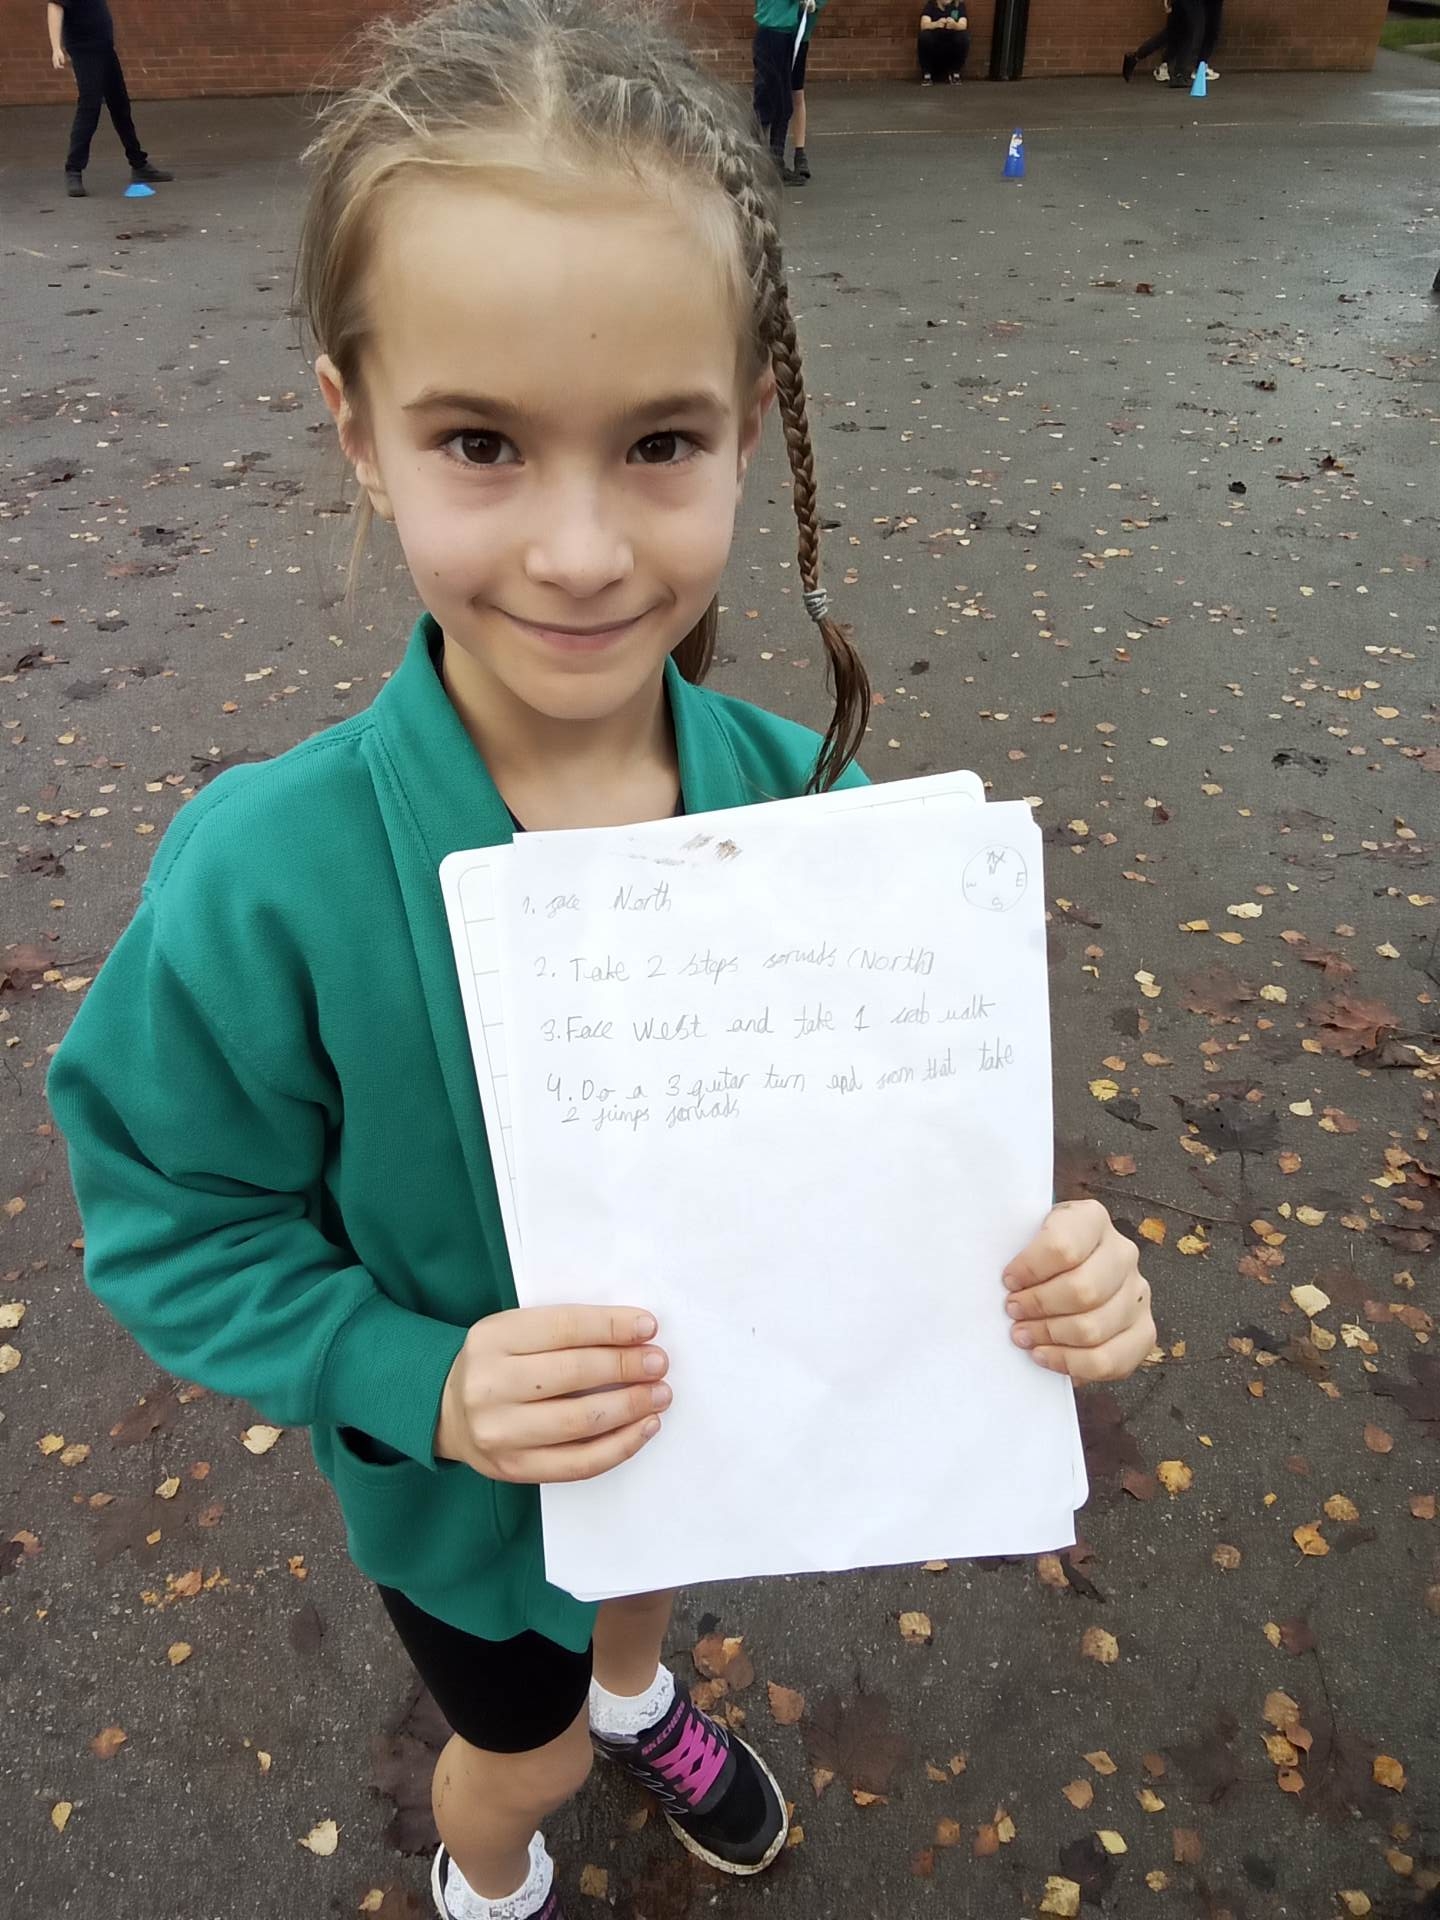 N
W E
S
1. face North
2. Take 2 steps forwads (North)
3. Face West and take 1 crab walk
4. Do a 3 qutar turn and from that take
2 jumps forwads
SKECHERS